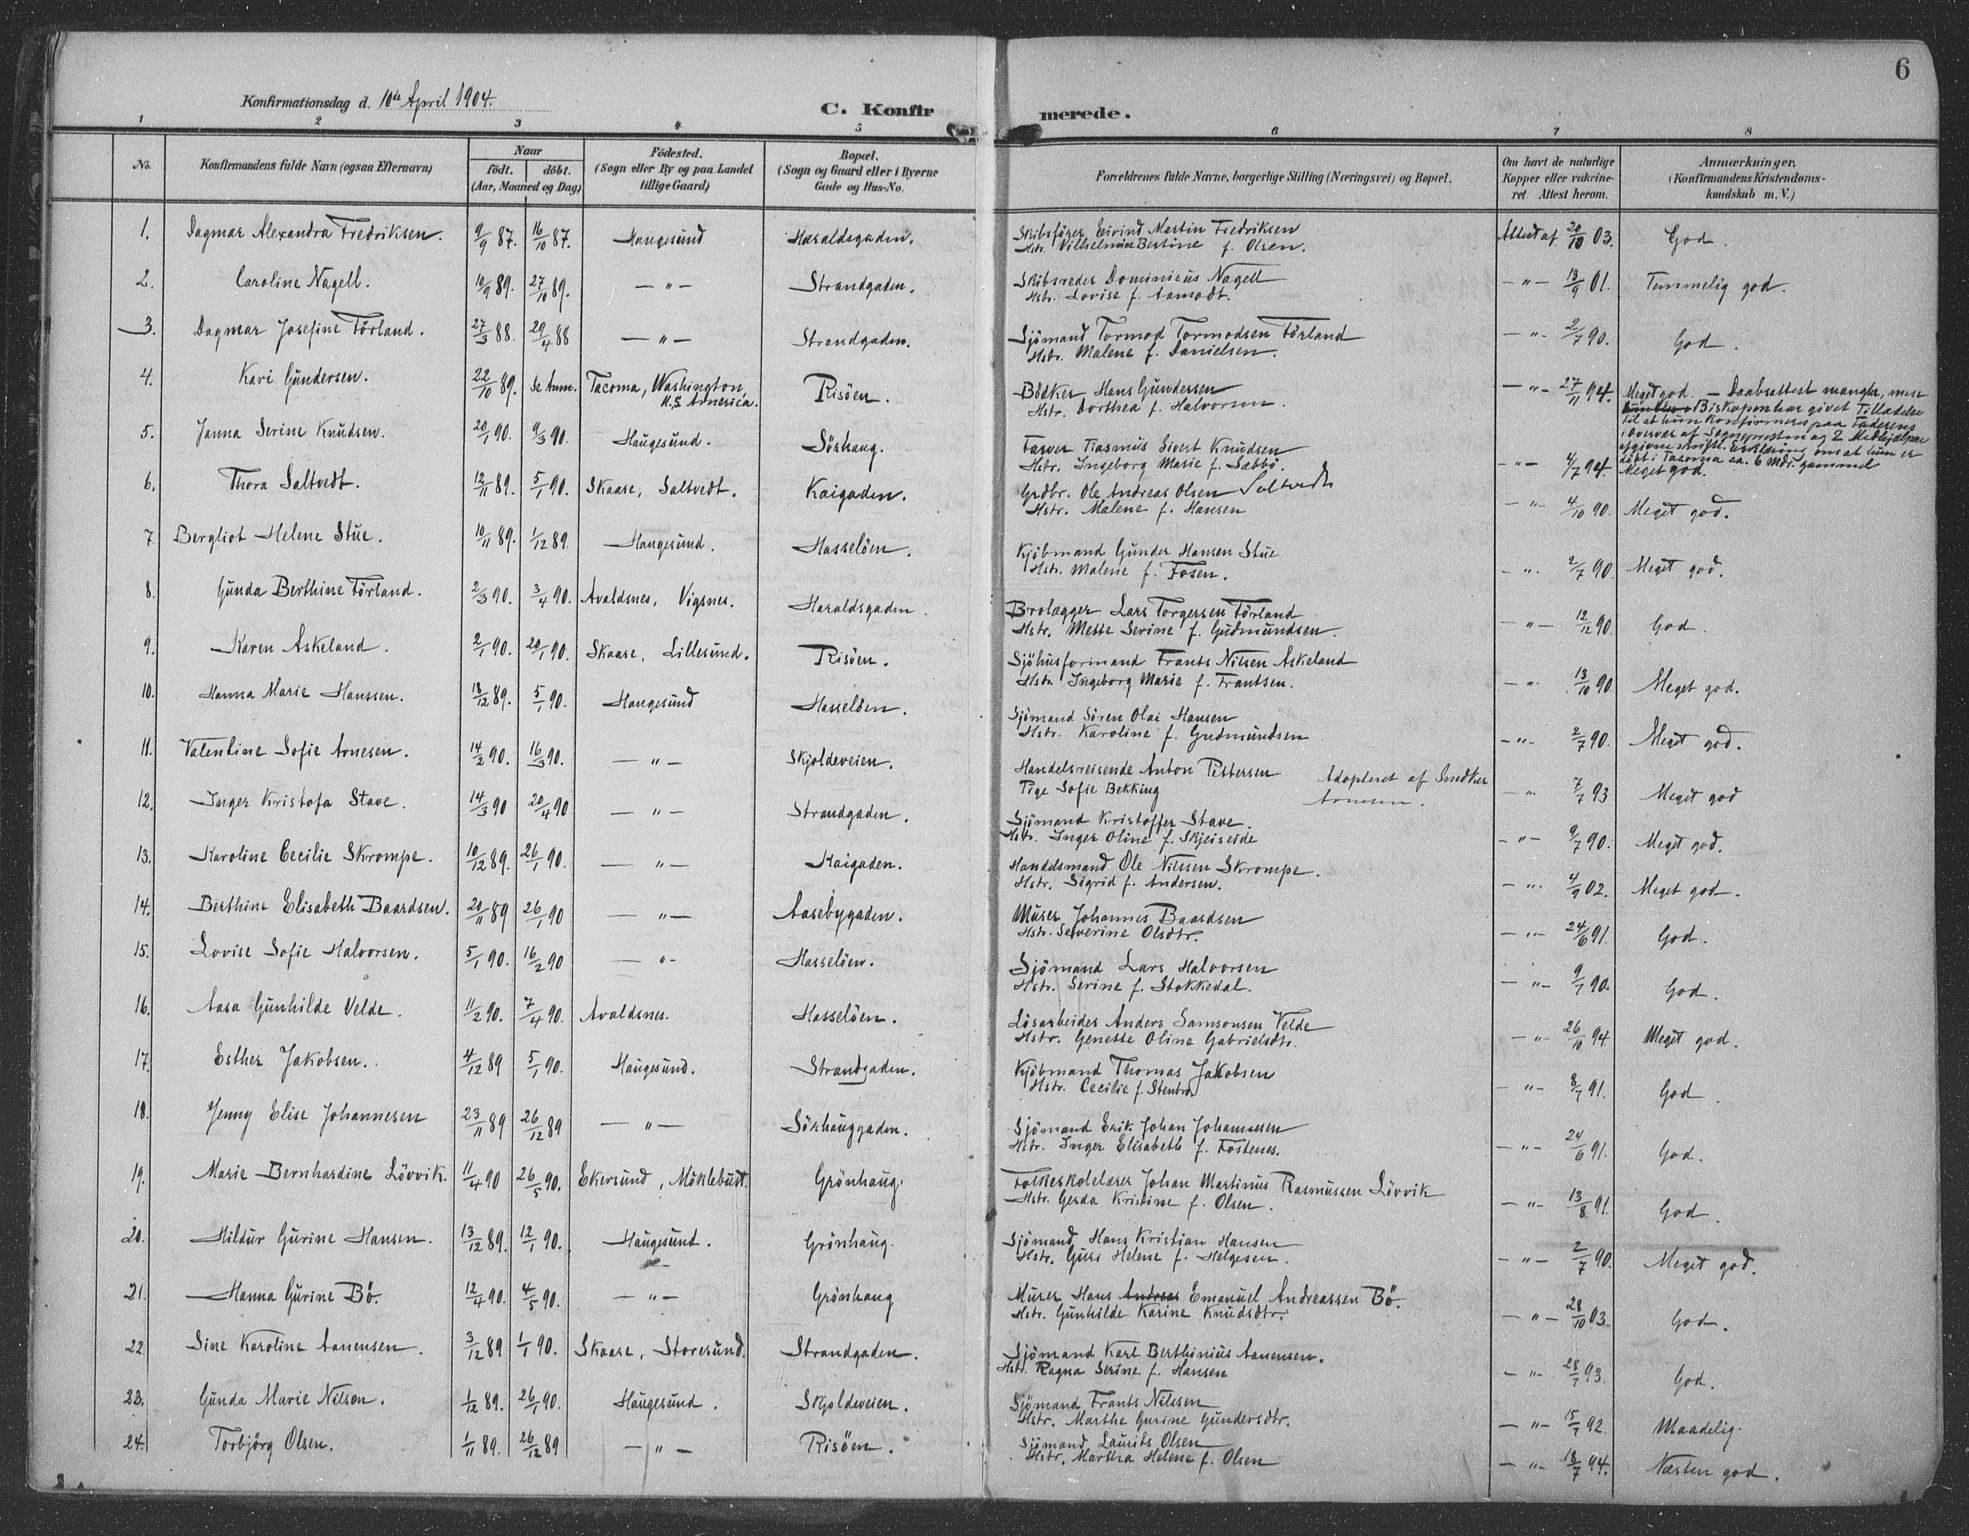 6
Konfirmationsdag d. 10de April 1904.
C. Konfirmerede.
1 2 3 4 5 6 7 8
No. | Konfirmandens fulde Navn (ogsaa Efternavn) | Naar födt. döbt. (Aar, Maaned og Dag) | Födested. (Sogn eller By og paa Landet tillige Gaard) | Bopæl. (Sogn og Gaard eller i Byerne Gade og Hus-No. | Forældrenes fulde Navne, borgerlige Stilling (Næringsvei) og Bopæl. | Om havt de naturlige Kopper eller vakcineret. Attest herom. | Anmærkninger. (Konfirmandens Kristendomskundskab m. V.)
1. Dagmar Alexandra Fredriksen. | 9/9 87. | 16/10 87. | Haugesund | Haraldsgaden. | Skibsfører Eivind Martin Fredriksen
Hstr. Vilhelmine Bertine f. Olsen. | Attest af 20/10 03. | God.
2. Caroline Nagell. | 10/9 89. | 27/10 89. | — " — | Strandgaden. | Skibsreder Dominicus Nagell
Hstr. Lovise f. Aamodt. | — " — 13/9 01. | Temmelig god.
3. Dagmar Josefine Förland. | 27/3 88. | 29/4 88 | — " — | Strandgaden. | Sjömand Tormod Tormodsen Förland
Hstr. Malene f. Danielsen. | — " — 2/7 90. | God.
4. Kari Gundersen. | 22/10 89. | Se Anm. | Tacoma, Washington, U.S. America. | Risöen. | Bödker Hans Gundersen
Hstr. Dorthea f. Halvorsen. | — " — 27/11 94. | Meget god. — Daabsattest mangler, men
Biskopen har givet Tilladelse
til at hun konfirmeres paa Faderens
i Overvær af Sognepresten og 2 Medhjælpere
afgivne skriftl. Erklæring om at hun er
döbt i Tacoma ca. 6 Mdr. gammel
5. Janna Serine Knudsen. | 20/1 90. | 9/3 90. | Haugesund. | Sörhaug. | Farver Rasmus Sivert Knudsen
Hstr. Ingeborg Marie f. Sæbbö. | — " — 4/7 94. | Meget god.
6. Thora Saltvedt. | 12/11 89. | 5/1 90. | Skaare, Saltvedt. | Kaigaden. | Grdbr. Ole Andreas Olsen Saltvedt
Hstr. Malene f. Hansen | — " — 4/10 90. | Meget god.
7. Bergliot Helene Stue. | 10/11 89. | 1/12 89. | Haugesund. | Hasselöen. | Kjöbmand Gunder Hansen Stue
Hstr. Malene f. Fosen. | — " 2/7 90. | Meget god.
8. Gunda Berthine Förland. | 2/3 90. | 3/4 90. | Avaldsnes, Vigsnes. | Haraldsgaden. | Brolægger Lars Torgersen Förland
Hstr. Mette Serine f. Gudmundsen. | — " — 12/12 90. | God.
9. Karen Askeland. | 2/1 90. | 20/1 90. | Skaare, Lillesund. | Risöen. | Sjöhusformand Frants Nilsen Askeland
Hstr. Ingeborg Marie f. Frantsen. | — " 13/10 90. | Meget god.
10. Hanna Marie Hanssen. | 18/12 89. | 5/1 90. | Haugesund | Hasselöen. | Sjömand Sören Olai Hansen
Hstr. Karoline f. Gudmundsen | — " — 2/7 90. | Meget god.
11. Valentine Sofie Arnesen. | 14/2 90. | 16/3 90. | — " — | Skjoldeveien. | Handelsreisende Anton Pettersen
Pige Sofie Bekking | Adopteret af Snedker Arnesen. | — " 7/7 93 | Meget god
12. Inger Kristofa Stave. | 14/3 90 | 20/4 90 | — " — | Strandgaden. | Sjömand Kristoffer Stave.
Hstr. Inger Oline f. Skjeiseide | — " — 9/7 90. | Meget god.
13. Karoline Cecilie Skrompe. | 10/12 89. | 26/1 90. | — " — | Kaigaden. | Handelsmand Ole Nilssen Skrompe.
Hstr. Sigrid f. Andersen. | — " 4/9 02. | Meget god.
14. Berthine Elisabeth Baardsen. | 20/11 89 | 26/1 90 | — " — | Aasebygaden. | Murer Johannes Baardsen
Hstr. Severine Olsdtr. | — " — 24/6 91. | God.
15. Lovise Sofie Halvorsen. | 5/1 90. | 16/2 90 | — " — | Hasselöen. | Sjömand Lars Halvorsen
Hstr. Serine f. Stokkedal. | — " — 9/7 90. | God.
16. Aasa Gunhilde Velde. | 11/2 90. | 7/4 90. | Avaldsnes. | Hasselöen. | Lösarbeider Anders Samsonsen Velde
Hstr. Genette Oline Gabrielsdtr. | — " — 26/10 94. | Meget god.
17. Esther Jakobsen. | 4/12 89 | 5/1 90. | Haugesund. | Strandgaden. | Kjöbmand Thomas Jakobsen
Hstr. Cecilie f. Stenbro | — " — 8/7 91. | God.
18. Jenny Elise Johannesen | 23/11 89 | 26/12 89 | — " — | Sörhauggaden. | Sjömand Erik Johan Johannesen
Hstr. Inger Elisabeth f. Fostenes. | — " — 24/6 91. | God.
19. Marie Bernhardine Lövvik. | 11/4 90 | 26/5 90. | Ekersund, Möklebust. | Grönhaug. | Folkeskolelærer Johan Martinus Rasmussen Lövvik
Hstr. Gerda Kristine f. Olsen. | — " — 13/8 91. | God.
20. Hildur Gurine Hansen. | 13/12 89. | 12/1 90. | Haugesund. | Grönhaug. | Sjömand Hans Kristian Hansen
Hstr. Guri Helene f. Helgesen. | — " — 2/7 90. | Meget god.
21. Hanna Gurine Bö. | 12/4 90. | 4/5 90. | — " — | Grönhaug | Murer Hans Andreas Emanuel Andreassen Bö.
Hstr. Gunhilde Karine Knudsdtr. | — " — 28/10 03. | God.
22. Sine Karoline Aanensen. | 3/12 89 | 1/1 90. | Skaare, Storesund. | Strandgaden. | Sjömand Karl Berthinius Aanensen.
Hstr. Ragna Serine f. Hansen | — " — 28/7 93. | God.
23. Gunda Marie Nilsen. | 1/12 89. | 26/1 90. | Haugesund. | Skjoldeveien. | Sjömand Frants Nilssen
Hstr. Marthe Gurine Gundersdtr. | — " — 15/7 92. | Maadelig.
24. Torbjörg Olsen. | 1/11 89. | 26/12 89 | — " — | Risöen. | Sjömand Laurits Olsen
Hstr. Martha Helene f. Olsen | — " — 18/7 94. | Næsten god.